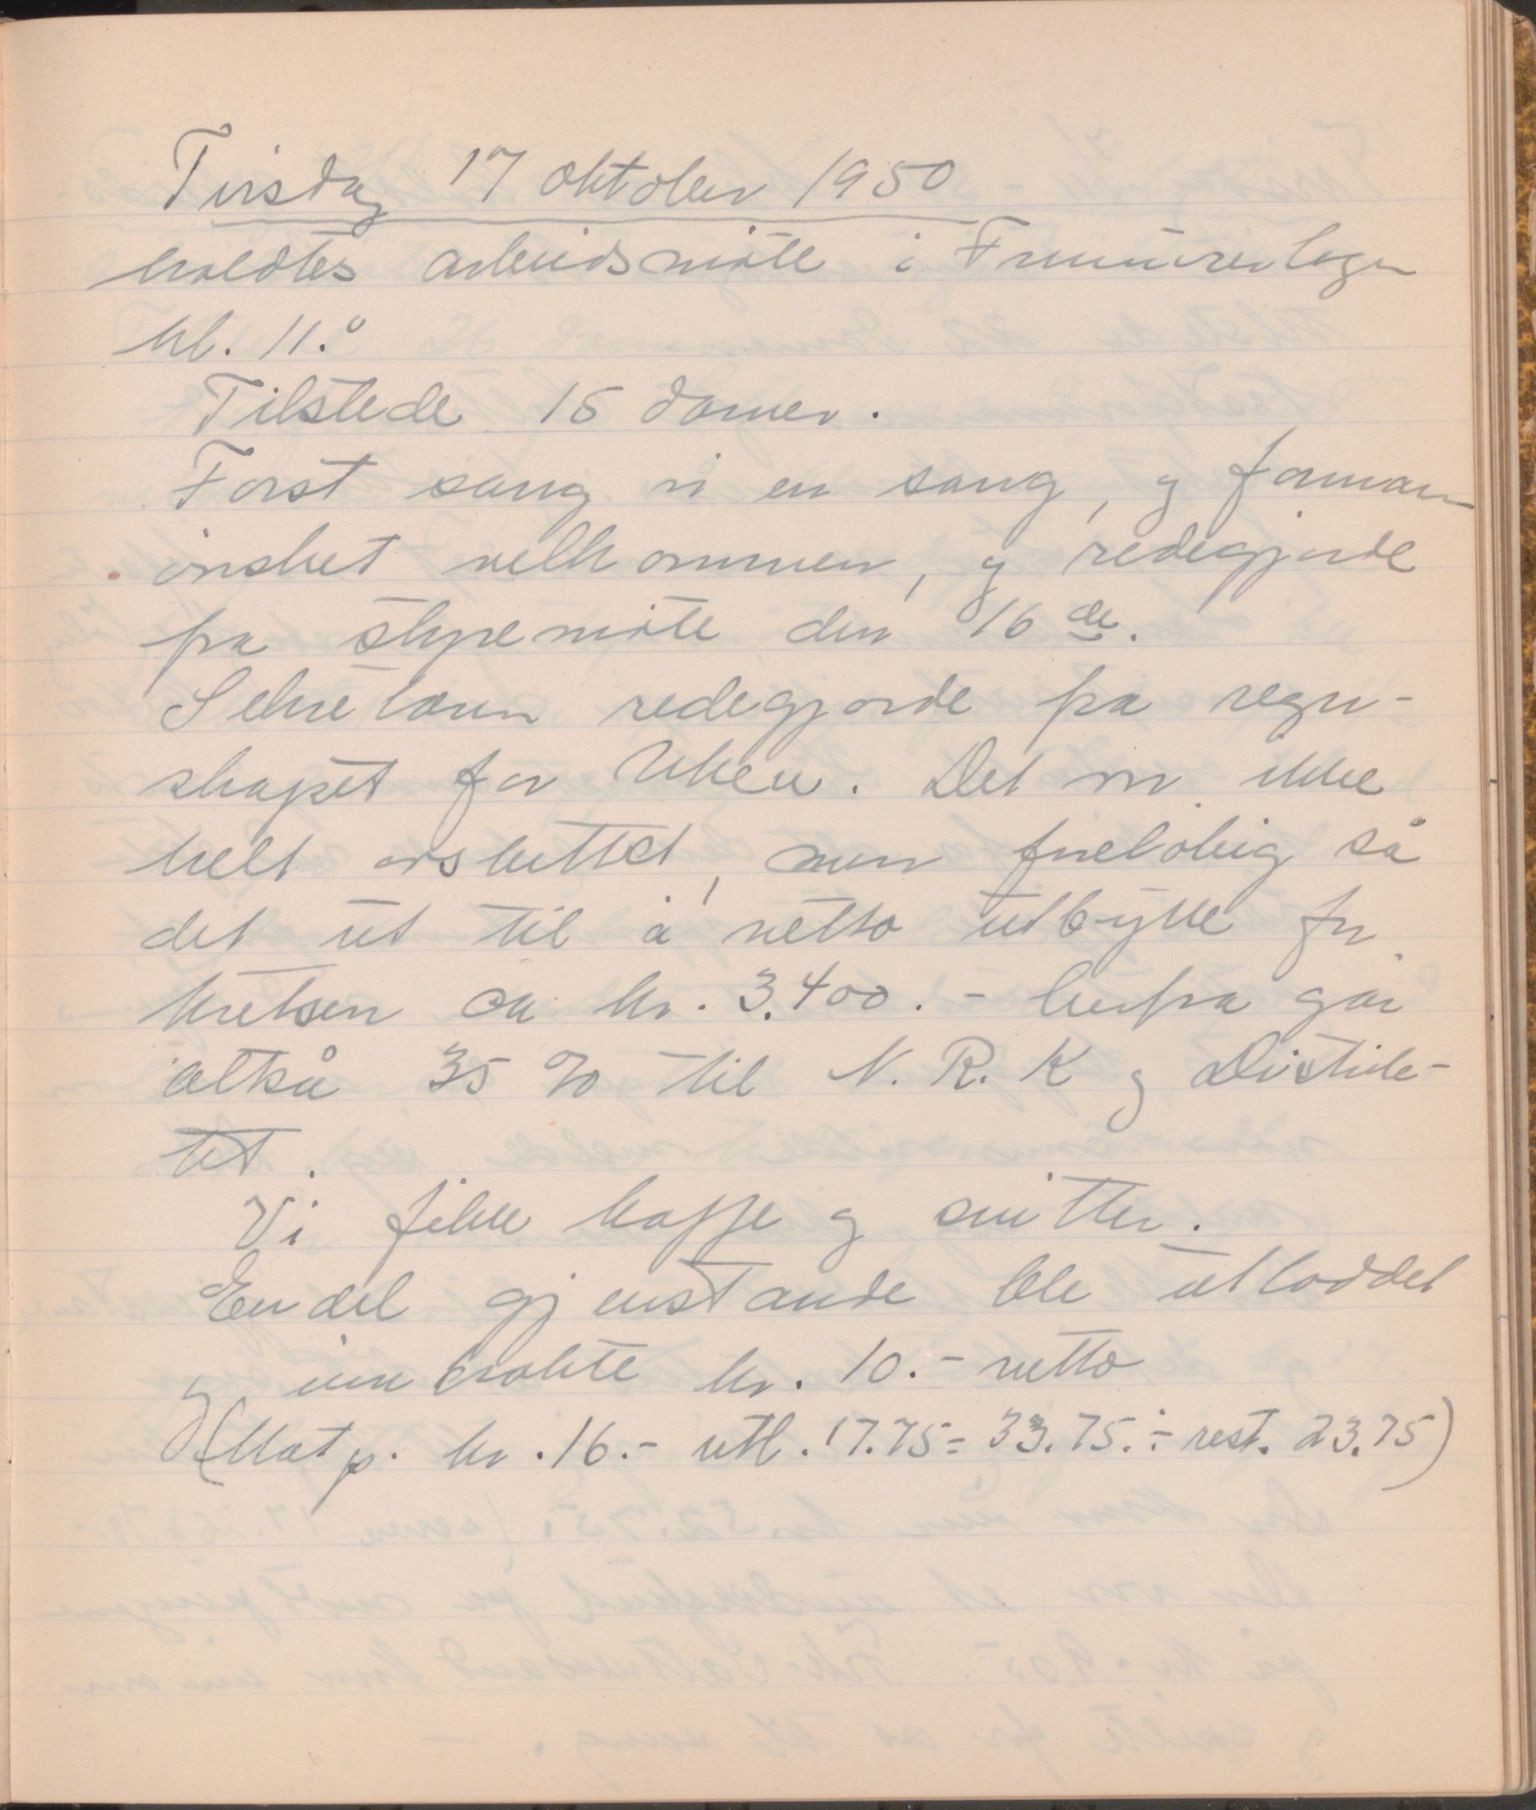 Tirsdag 17 oktober 1950
holdtes arbeidsmöte i Frimurerlogen
kl. 11.º
Tilstede 15 damer.
Först sang vi en sang, og formann
önsket velkommen, og redegjorde
fra styremöte den 16 de.
Sekretæren redegjorde fra regn-
skapet for Uken. Det var ikke
helt avsluttet, men foreløbig så
det ut til å netto utbytte for
kretsen ca kr. 3.400.- herfra går
altså 35 % til N. R. K og Distrik-
tet.
Vi fikk kaffe og snitter.
Endel gjenstande ble utloddet
og innbrakte kr. 10.- netto
(Mat p. kr. 16.- utl. 17.75 = 33.75 ÷ rest. 23.75)